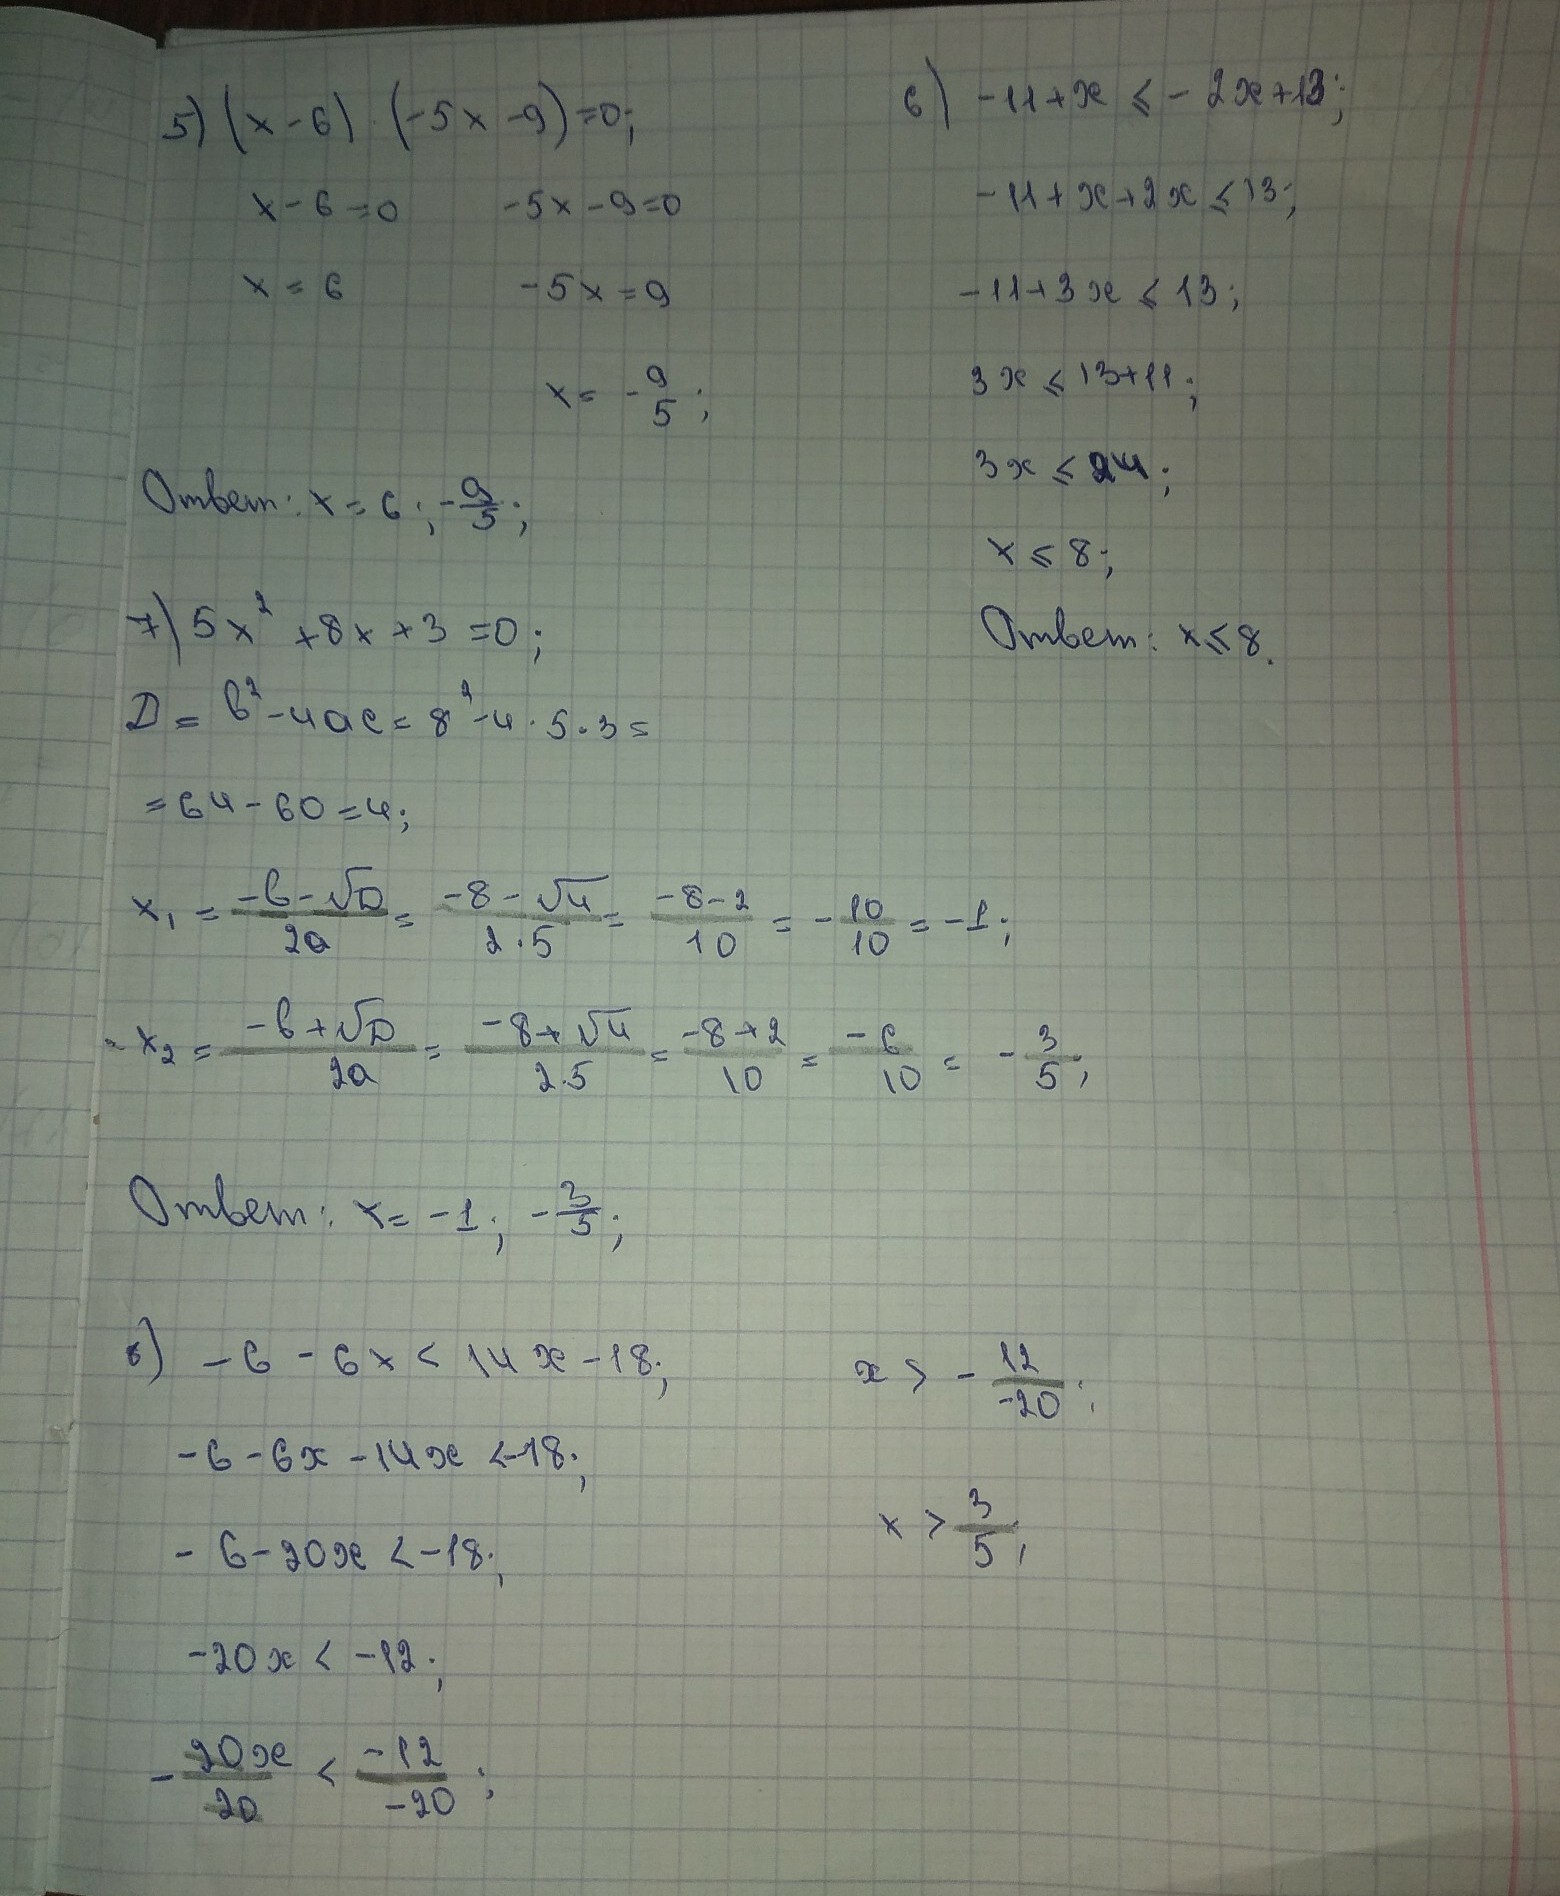 5) (x - 6) · (-5x - 9) = 0;
x - 6 = 0    -5x - 9 = 0
x = 6    -5x = 9
x = -9/5;
Ответ: x = 6; -9/5;
6) -11 + x ≤ - 2x + 13;
-11 + x + 2x ≤ 13;
-11 + 3x ≤ 13;
3x ≤ 13 + 11;
3x ≤ 24;
x ≤ 8;
Ответ: x ≤ 8.
7) 5x² + 8x + 3 = 0;
D = b² - 4ac = 8² - 4 · 5 · 3 =
= 64 - 60 = 4;
x₁ = (-b - √D)/2a = (-8 - √4)/(2 · 5) = (-8 - 2)/10 = -10/10 = -1;
x₂ = (-b + √D)/2a = (-8 + √4)/(2 · 5) = (-8 + 2)/10 = -6/10 = -3/5;
Ответ: x = -1; -3/5;
8) -6 - 6x < 14x - 18;
-6 - 6x - 14x < -18;
-6 - 20x < -18;
-20x < -12;
-20x/20 < -12/-20;
x > -12/-20;
x > 3/5;